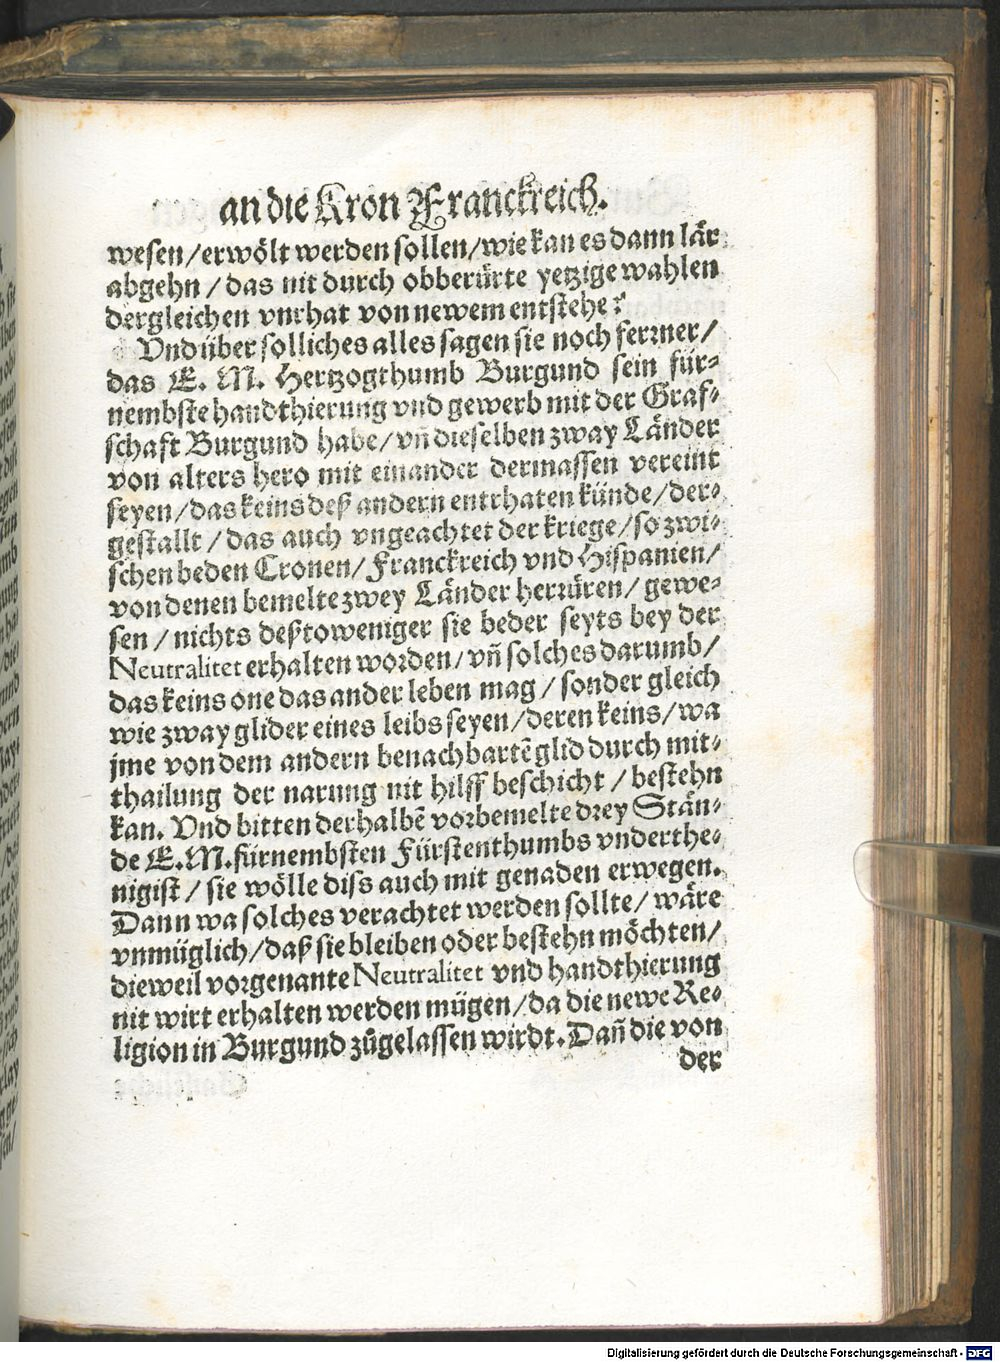 an die Kron Franckreich.
wesen/erwölt werden sollen/wie kan es dann lär
abgehn/das nit durch obberürte yetzige wahlen
dergleichen vnrhat von newem entstehe?
Vnd über solliches alles sagen sie noch ferrner/
das E. M. Hertzogthumb Burgund sein für-
nembste handthierung vnd gewerb mit der Graf-
schaft Burgund habe/vñ dieselben zway Länder
von alters hero mit einander dermassen vereint
seyen/das keins deß andern entrhaten künde/der-
gestallt/das auch vngeachtet der kriege/so zwi-
schen beden Cronen/Franckreich vnd Hispanien/
von denen bemelte zwey Länder herrüren/gewe-
sen/nichts deßtoweniger sie beder seyts bey der
Neutralitet erhalten worden/vñ solches darumb/
das keins one das ander leben mag/sonder gleich
wie zway glider eines leibs seyen/deren keins/wa
jme von dem andern benachbartē glid durch mit-
thailung der narung nit hilff beschicht/bestehn
kan. Vnd bitten derhalbē vorbemelte drey Stän-
de E.M. fürnembsten Fürstenthumbs vnderthe-
nigist/sie wölle diss auch mit genaden erwegen.
Dann wa solches verachtet werden sollte/wäre
vnmüglich/daß sie bleiben oder bestehn möchten/
dieweil vorgenante Neutralitet vnd handthierung
nit wirt erhalten werden mügen/da die newe Re-
ligion in Burgund zůgelassen wirdt. Dañ die von
der
Digitalisierung gefördert durch die Deutsche Forschungsgemeinschaft - DFG